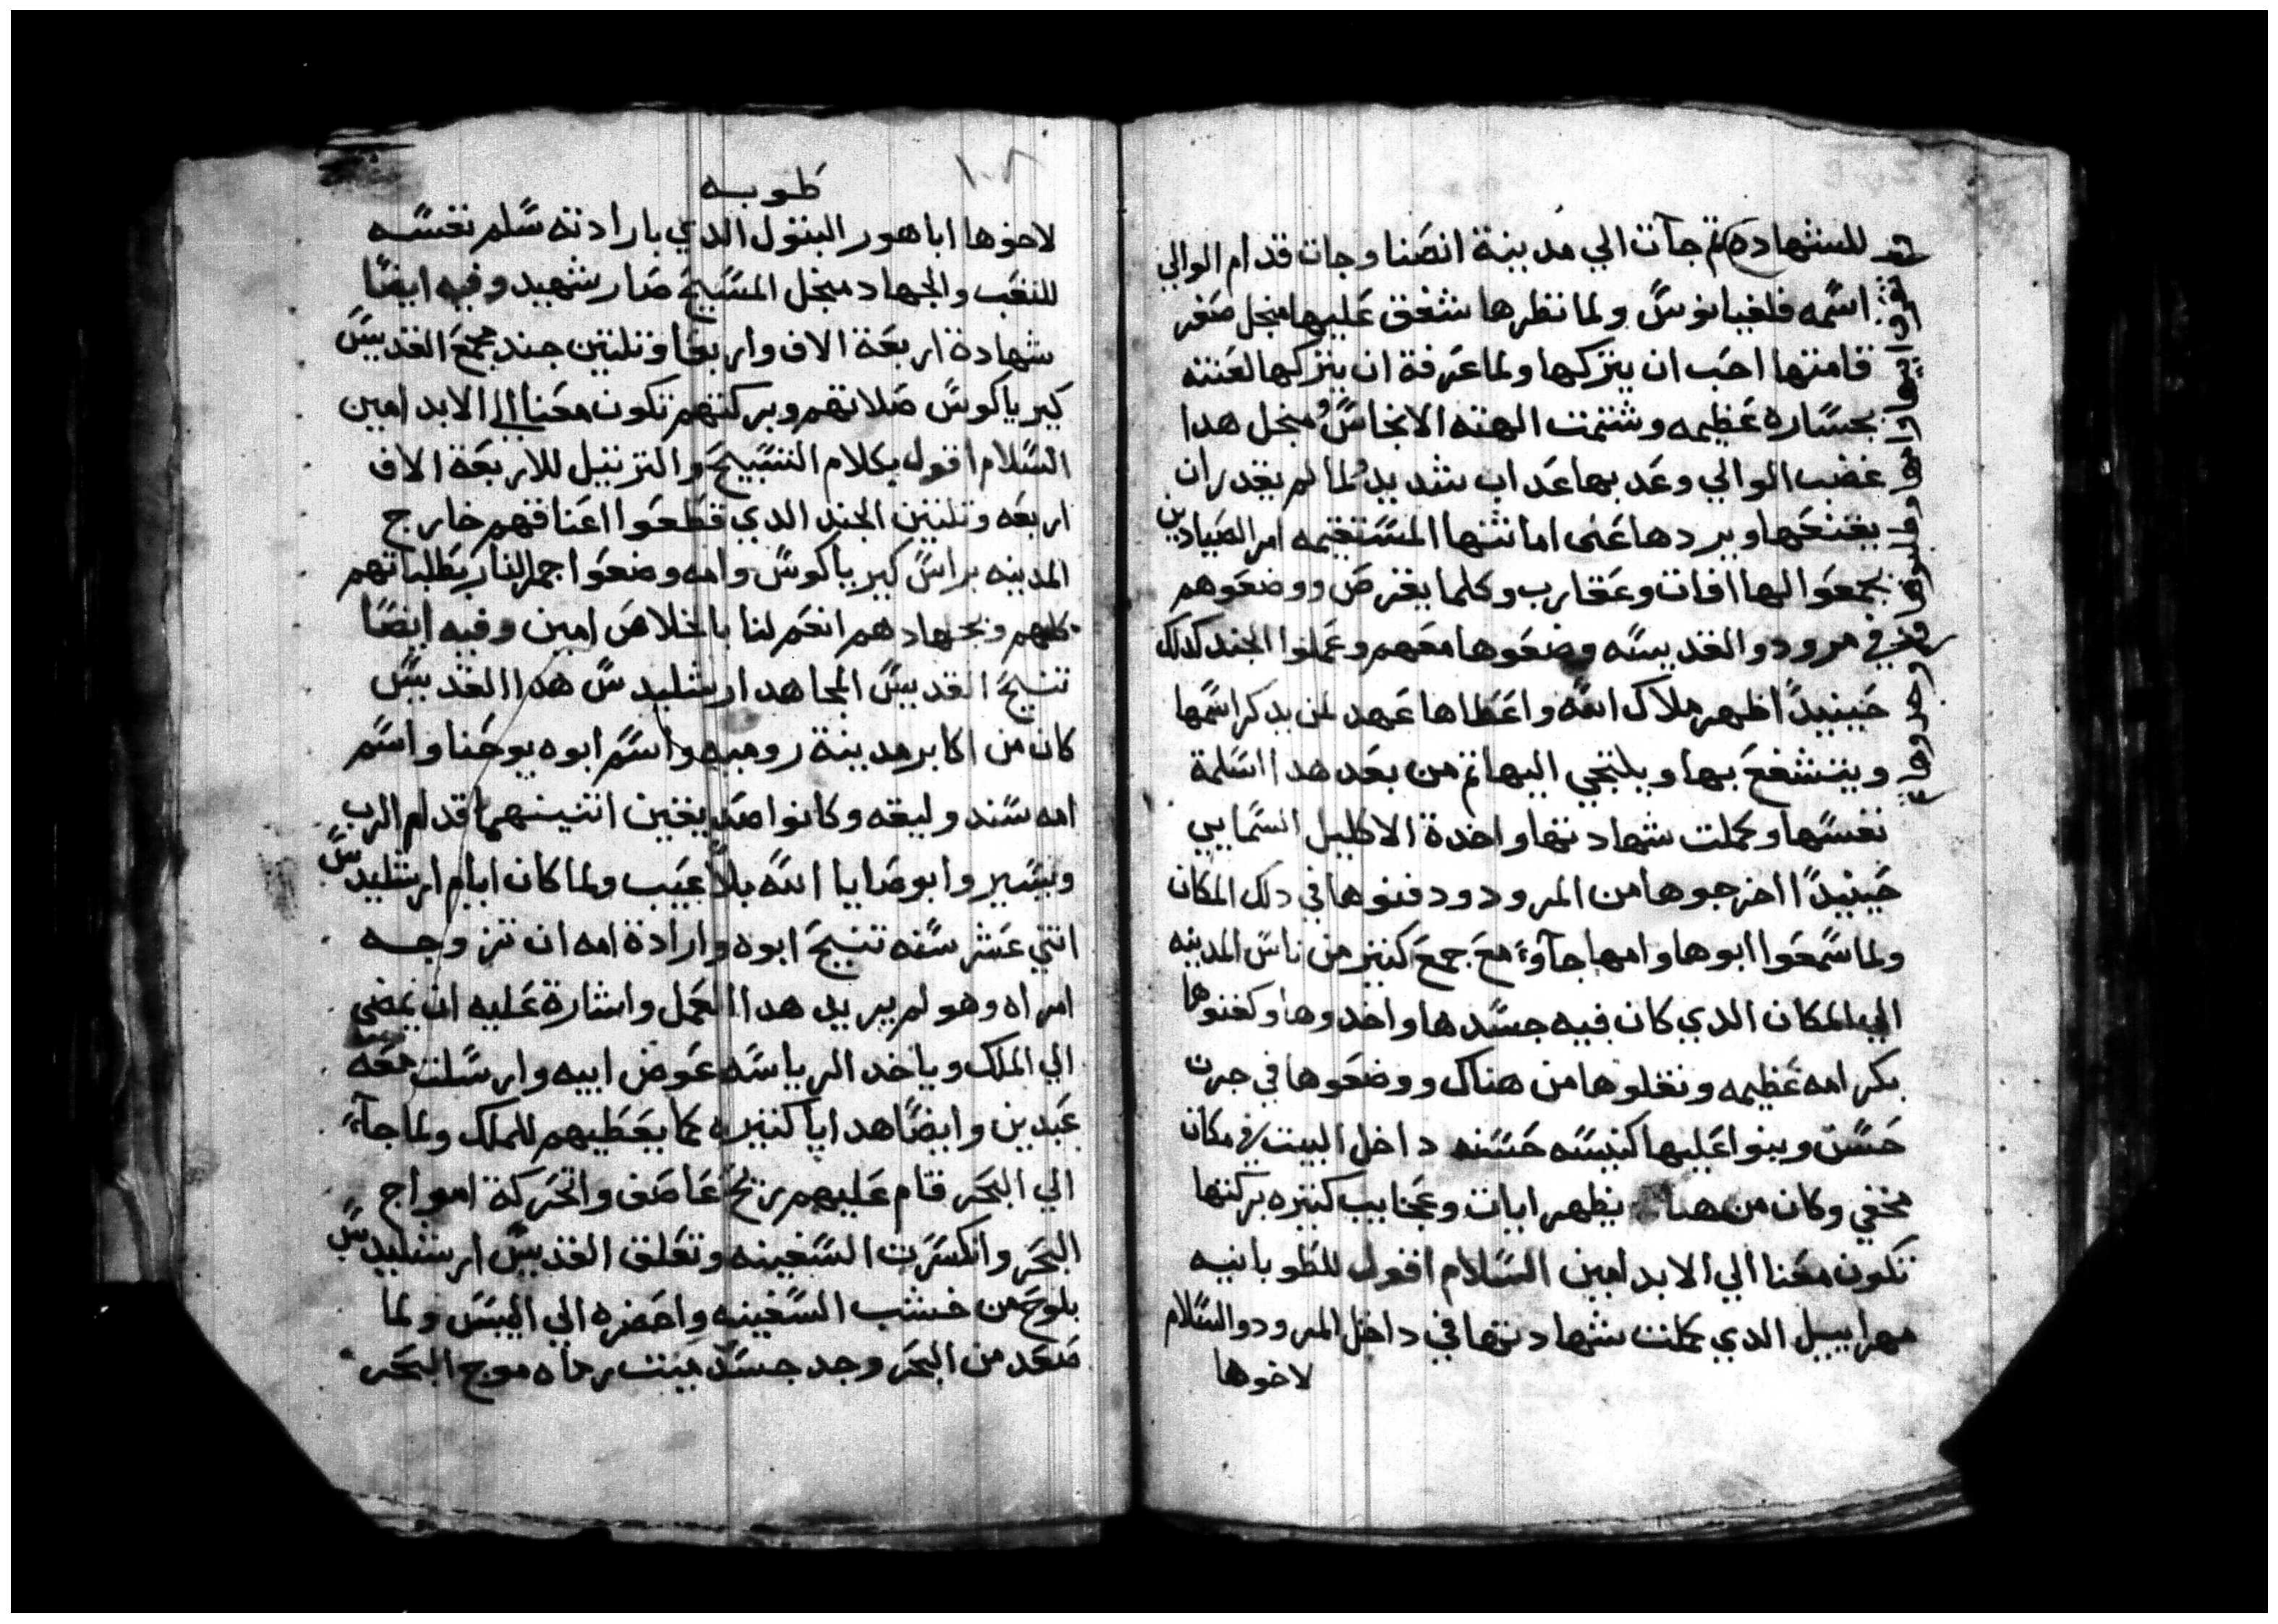 للشهاده ثم جآت الي مدينة انصنا وجات قدام الوالي
اسمه فلفيانوس ولما نظرها شفق عليها منجل صغر
قامتها احب ان يتركها ولما عرفة ان يتركها لعنته
بجساره عظيمه وشتمت الهته الانجاس ومنجل هدا
غضب الوالي وعدبها عداب شديد ولما لم يقدر ان
يقنعها ويردها عن امانتها المستقيمه امر الصيادين
يجمعوا لها افات وعقارب وكلما يقرص ووضعوهم
في مرود والقديسه وضعوها معهم وعملوا الجند كدلك
حينيدًا ظهر ملاك الله واعطاها عهد لمن يدكر اسمها
ويتشفع بها ويلتجي اليها ثم من بعد هدا اسلمة
نفسها وكملت شهادتها واخدة الاكليل السمايي
حينيدًا اخرجوها من المرود ودفنوها في دلك المكان
ولما سمعوا ابوها وامها جآوً مع جمع كتير من ناس المدينه
الي المكان الدي كان فيه جسدها واخدوها وكفنوها
بكرامه عظيمه ونقلوها من هناك ووضعوها في جرن
حسن وبنوا عليها كنيسه حسنه داخل البيت في مكان
مخفي وكان من هناك يظهر ايات وعجايب كتيره بركتها
تكون معنا الي الابد امين السلام اقول للطوبانيه
مهراييل الدي كملت شهادتها في داخل المرود والسلام
لاخوها
طوبه
١٠٨
لاخوها اباهور البتول الدي بارادته سلم نفسه
للتعب والجهاد منجل المسيح صار شهيد وفيه ايضًا
شهادة اربعة الاف واربعا وتلتين جند مجمع القديس
كيرياكوس صلاتهم وبركتهم تكون معنا الي الابد امين
السلام اقول بكلام التسبيح والترتيل للاربعة الاف
اربعه وتلتين الجند الدي قطعوا اعناقهم خارج
المدينه براس كيرياكوس وامه وضعوا جمر النار بطلباتهم
كلهم وبجهادهم انعم لنا بالخلاص امين وفيه ايضًا
تنيح القديس المجاهد ارشليدس هدا القديس
كان من اكابر مدينة روميه واسم ابوه يوحنا واسم
امه سندوليقه وكانوا صديقين اتنينهما قدام الرب
ويسيروا بوصايا الله بلا عيب ولما كان ايام ارشليدس
اتني عشر سنه تنيح ابوه وارادة امه ان تزوجه
امراه وهو لم يريد هدا العمل واشارة عليه ان يمضي
الي الملك وياخد الرياسه عوض ابيه وارسلت معه
عبدين وايضًا هدايا كتيره كما يعطيهم للملك ولما جآءً
الي البحر قام عليهم ريح عاصف واتحركة امواج
البحر وانكسرت السفينه وتعلق القديس ارشليدس
بلوح من خشب السفينه واحضره الي اليبس ولما
صعد من البحر وجد جسد ميت رماه موج البحر